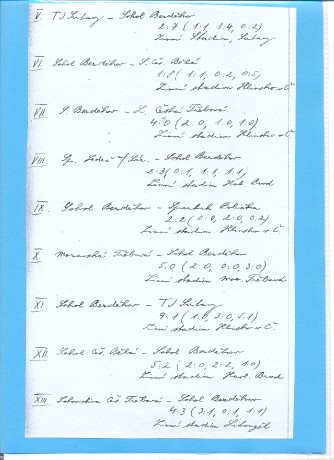 V. TJ Svitavy – Sokol Berděkov
2:7 (1:1, 1:4, 0:2)
Zimní Stadion, Svitavy
VI. Sokol Berděkov – S. Čes. Bělá
1:8 (1:1, 0:2, 0:5)
Zimní stadion Hlinsko v Č
VII. S. Berděkov – L. Česká Třebová
4:0 (2:0, 1:0, 1:0)
Zimní stadion Hlinsko v Č
VIII. Sp. Sokol Berděkov
2:3 (0:1, 1:1, 1:1)
Zimní stadion Hav. Brod
IX. Sokol Berděkov – Spartak Polička
2:2 (0:0, 2:0, 0:2)
Zimní stadion Hlinsko v Č
X. Moravská Třebová – Sokol Berděkov
5:0 (2:0, 0:0, 3:0)
Zimní stadion Mor. Třebová
XI. Sokol Berděkov – TJ Svitavy
9:1 (1:0, 3:0, 5:1)
Zimní stadion Hlinsko v Č
XII. Sokol Čes. Bělá – Sokol Berděkov
5:2 (2:0, 2:2, 1:0)
Zimní stadion Havl. Brod
XIII. Čes. Třebová – Sokol Berděkov
4:3 (3:1, 0:1, 1:1)
Zimní stadion Litomyšl